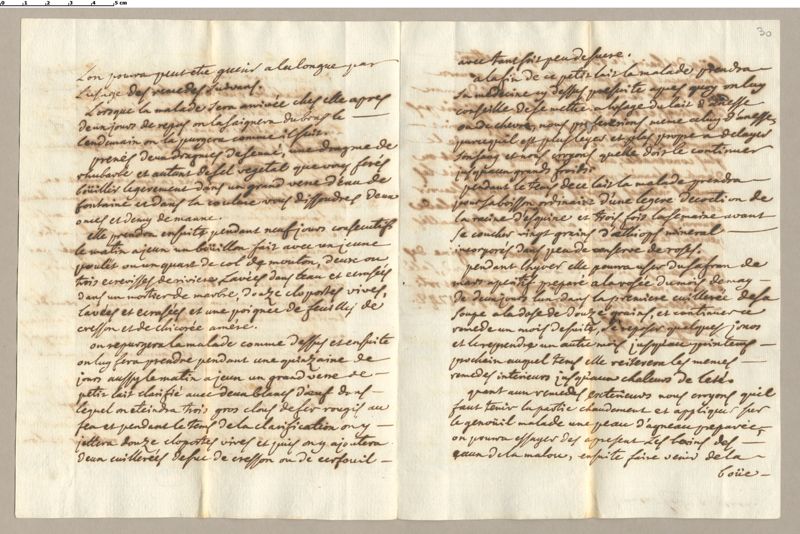 0 1 2 3 4 5 cm
30
L'on poura peut etre guerir a la longue par
L'usage des remedes suivans.
Lorsque la malade sera arrivée chés elle apres
deux jours de repos on la saignera du bras le
Lendemain on la purgera comme il suit.
prenés deux dragmes de sené, une dragme de
rhubarbe et autant de sel vegetal que vous ferés
boüillir legerement dans un grand vere d'eau de
fontaine et dans la couleure vous dissoudres deux
onces et demy de manne.
elle prendra ensuite pendant neuf jours consecutifs
le matin a jeun un boüillon fait avec un jeune
poulet ou un quart de col de mouton, deux ou
trois ecrevisses de riviere Lavées dans l'eau et ecrasées
dans un mortier de marbre, douze cloportes vives,
lavées et ecrasées et une poignée de feuilles de
cresson et de chicorée amere.
on repurgera la malade comme dessus et ensuite
on luy fera prendre pendant une quinzaine de
jours aussy le matin a jeun un grand vere de
petit lait clarifié avec deux blancs d'oeuf dans
lequel on eteindra trois gros clous de fer rougis au
feu et pendant le tems de la clarification on y
jettera douze cloportes vives et puis on y ajoutera
deux cuillerées de suc de cresson ou de cerfeuil
avec tant soit peu de sucre.
a la fin de ce petit lait la malade prendra
sa medecine cy dessus presente apres quoy on luy
conseille de se mettre a l'usage du lait d'anesse
ou de chevre, nous prefererions meme celuy d'anesse,
parcequ'il est plus leger et plus propre a delayer
son sang et nous croyons qu'elle doit le continuer
jusqu'aux grands froids.
pendant le tems de ce lait la malade prendra
pour sa boisson ordinaire d'une legere decoction de
la racine d'esquine et trois fois la semaine avant
se coucher vingt grains d'æthiops mineral
incorporés dans peu de conserve de roses.
pendant l'hyver elle poura user du safran de
mars aperitif preparé a la rosée du mois de may
de deux jours l'un dans la premiere cuillerée de sa
soupe a la dose de douze grains, et continuer ce
remede un mois de suite, se reposer quelques jours
et le reprendre un autre mois jusqu'au printems
prochain auquel tems elle reiterera les memes
remedes interieurs jusqu'aux chaleurs de l'esté.
quant aux remedes exterieurs nous croyons qu'il
faut tenir la partie chaudement et appliquer sur
le genoüil malade une peau d'agneau preparée,
on poura essayer des a present Les bains des
eaux de la malou, ensuite faire venir de la
boüe